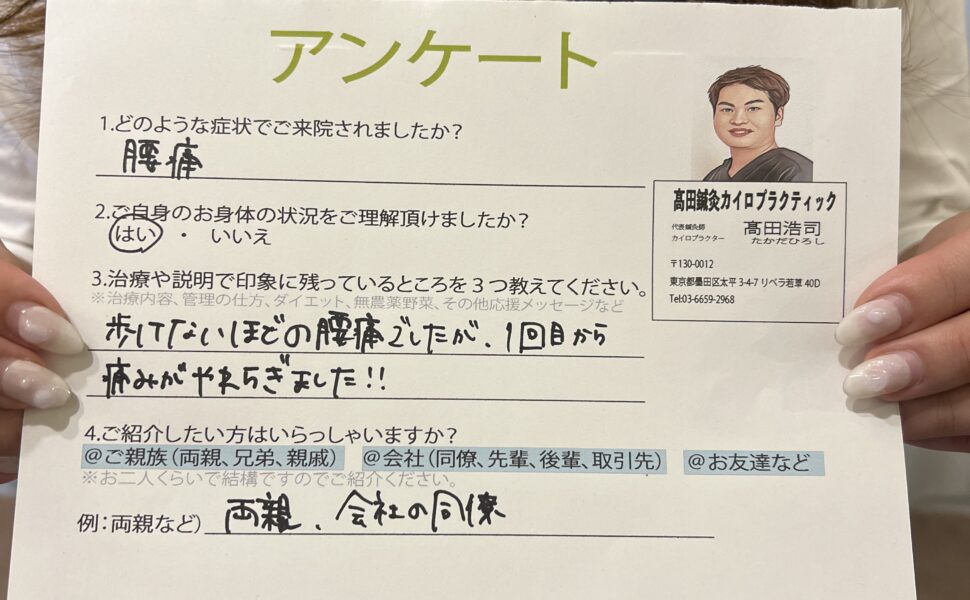 アンケート
1.どのような症状でご来院されましたか?
腰痛
2.ご自身のお身体の状況をご理解頂けましたか?
はい ・ いいえ
3.治療や説明で印象に残っているところを3つ教えてください。
※治療内容、管理の仕方、ダイエット、無農薬野菜、その他応援メッセージなど
歩けないほどの腰痛でしたが、1回目から
痛みがやわらぎました!!
4.ご紹介したい方はいらっしゃいますか?
@ご親族(両親、兄弟、親戚) @会社(同僚、先輩、後輩、取引先) @お友達など
※お二人くらいで結構ですのでご紹介ください。
例:両親など) 両親、会社の同僚
髙田鍼灸カイロプラクティック
代表鍼灸師
カイロプラクター
髙田浩司
たかだひろし
〒130-0012
東京都墨田区太平 3-4-7 リベラ若草 40D
Tel:03-6659-2968